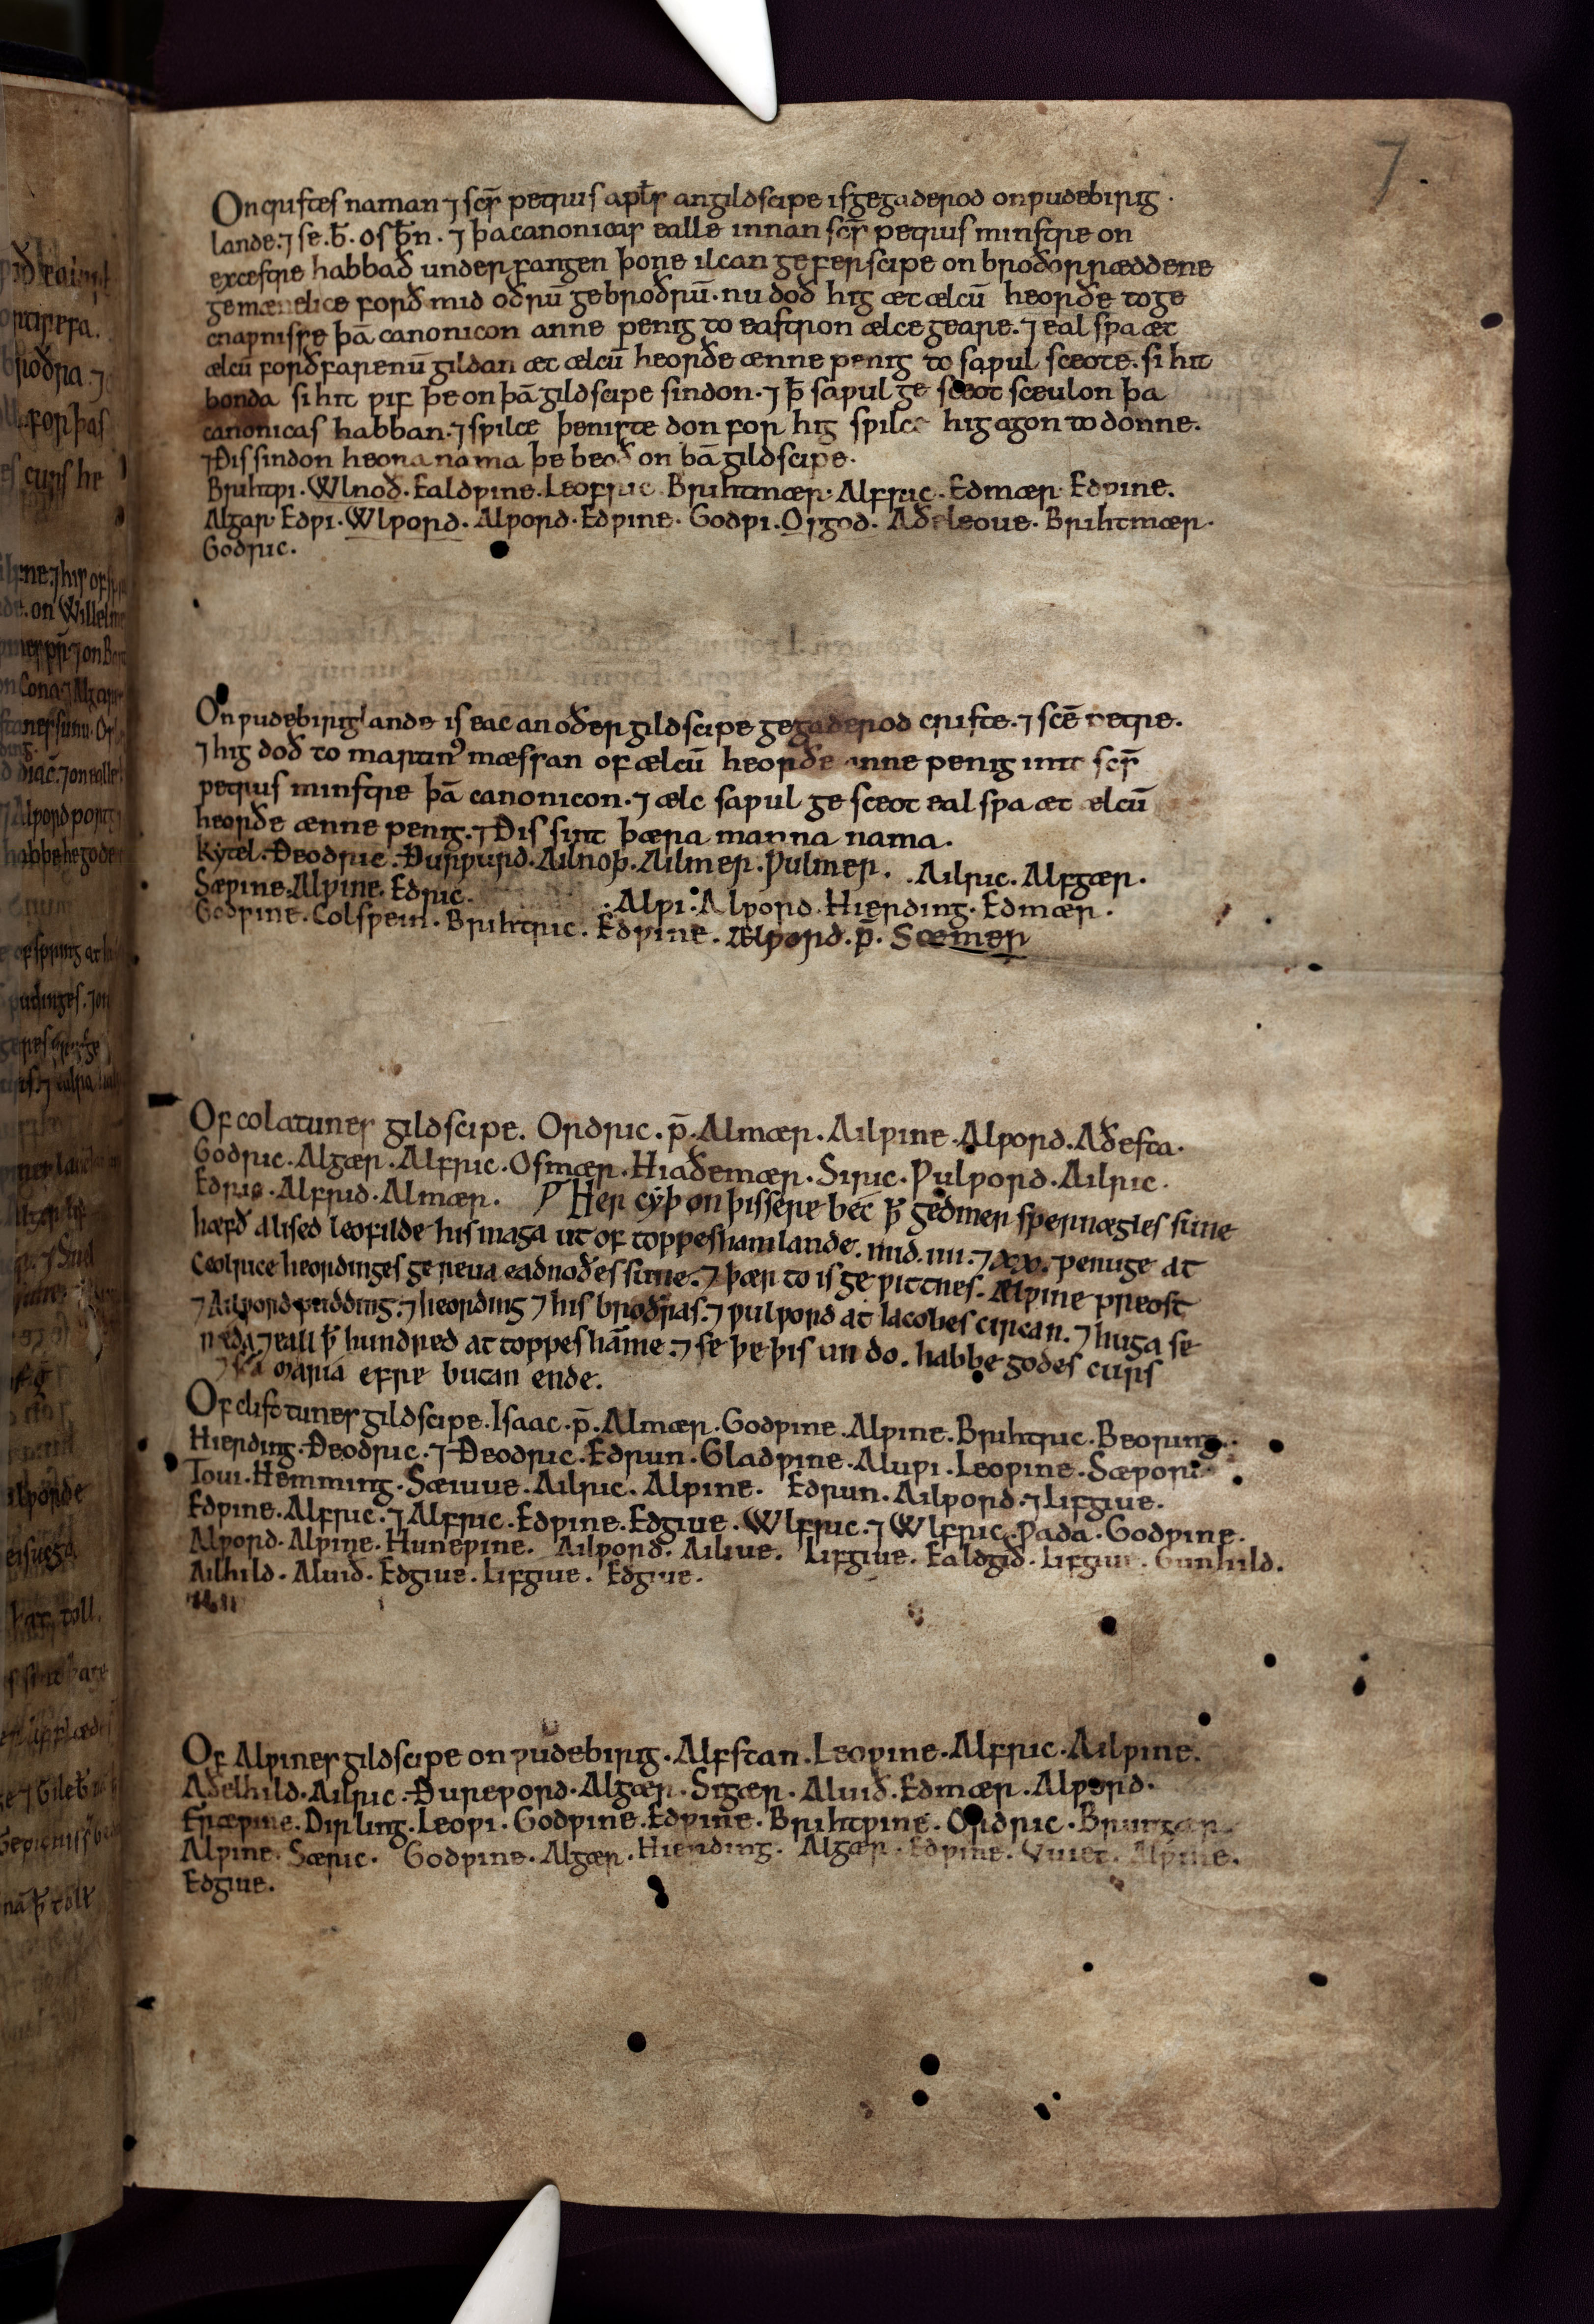 7
On cristes naman ⁊ scs̄ petrus apłs an gildscipe is gegaderod on ƿudebirig
lande. ⁊ se .b̄. osb̄n. ⁊ þa canonicas ealle innan scs̄ petrus minstre on
excestre habbað underfangen þone ilcan geferscipe on broðorræddene
gemænelice forð mid oðrū gebroðrū. nu doð hig æt ælcū heorðe to ge
cnaƿnisse þā canonicon anne penig to eastron ælce geare. ⁊ eal sƿa æt
ælcū forðfarenū gildan æt ælcū heorðe ænne penig to saƿul sceote. si hit
bonda si hit ƿif þe on þā gildscipe sindon. ⁊ ꝥ saƿul gesceot sceulon þa
canonicas habban. ⁊ sƿilce þenisce don for hig sƿilce hig agon to donne.
⁊ Ðis sindon heora nama þe beoð on þā gildscipe.
Brihtƿi. Wlnoð. Ealdƿine. Leofric. Brihtmær. Alfric. Edmær. Edƿine.
Algar. Edƿi. Wlƿord. Alƿord. Edƿine. Godƿi. Orgod. Aðeleoue. Brihtmær.
Godric.
On ƿudebirig lande is eac an oðer gildscipe gegaderod criste. ⁊ scē petre.
⁊ hig doð to martinꝰ mæssan of ælcū heorðe anne penig intt scs̄
petrus minstre þā canonicon. ⁊ ælc saƿul gesceot eal sƿa æt ælcū
heorðe ænne penig. ⁊ Ðis sint þæra manna nama.
Kytel. Ðeodric. Ðurƿurd. Ailnoþ. Ailmer. Ƿulmer. . Ailric. Alfgær.
Sæƿine. Alƿine. Edric. . Alƿi. Alƿord. Hierding. Edmær.
Godƿine. Colsƿein. Brihtric. Edƿine. Ælƿord. p̄. Sæmer
Of colatuner gildscipe. Ordric. p̄. Almær. Ailƿine. Alƿord. Aðesta.
Godric. Algær. Alfric. Osmær. Hiaðemær. Siric. Ƿulƿord. Ailric.
Edric. Alfrid. Almær. Her cyþ on þissere bec ꝥ gedmer spernægles sune
hæfð alised leofilde his maga ut of toppeshamlande. mid. iiii. ⁊ xx. penuge at
Ceolrice heordinges gereua eadnoðes sune. ⁊ þær to is geƿittnes. Ælƿine preost
⁊ Ailƿord pudding. ⁊ heording ⁊ his broðras. ⁊ ƿulƿord at Iacobes circan. ⁊ huga se
ræda. ⁊ eall ꝥ hundred at toppeshāme. ⁊ se þe þis un do. habbe godes curs
⁊ scā maria efre butan ende.
Of clisttuner gildscipe. Isaac. p̄. Almær. Godƿine. Alƿine. Brihtric. Beoring.
Hierding. Ðeodric. ⁊ Ðeodric. Edrun. Gladƿine. Aluƿi. Leoƿine. Sæƿord
Toui. Hemming. Sæuue. Ailric. Alƿine. Edrun. Ailƿord. ⁊ Lifgiue.
Edƿine. Alfric. ⁊ Alfric. Edƿine. Edgiue. Wlfric. ⁊ Wlfric. Ƿada. Godƿine.
Alƿord. Alƿine. Huneƿine. Ailƿord. Ailiue. Lifgiue. Ealdgið. Lifgiue. Gunhild.
Ailhild. Aluið. Edgiue. Lifgiue. Edgiue.
Of Alƿiner gildscipe on ƿudebirig. Alfstan. Leoƿine. Alfric. Ailƿine.
Aðelhild. Ailric. Ðureƿord. Algær. Sigær. Aluið. Edmær. Alƿord.
Dirling. Leoƿi. Godƿine. Edƿine. Brihtƿine. Ordric.
Alƿine. Særic. Godƿine. Algær. Hierding. Algær. Edƿine. Alƿine.
Edgiue.